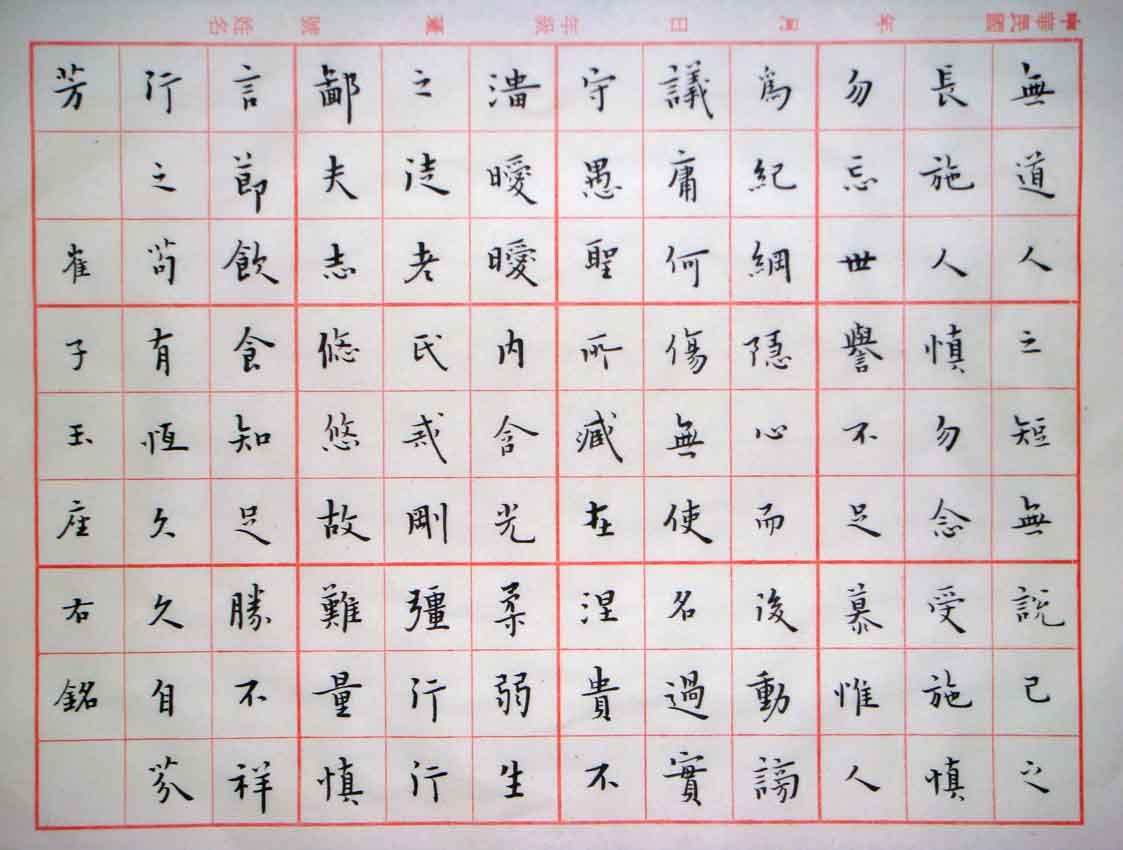 中華民國 年 月 日 年級 號 姓名
無道人之短無說己之
長施人慎勿念受施慎
勿忘世譽不足慕惟人
爲紀綱隱心而後動謗
議庸何傷無使名過實
守愚聖所臧在涅貴不
湽曖曖內含光柔弱生
之徒老氏戒剛彊行行
鄙夫志悠悠故難量慎
言節飲食知足勝不祥
行之苟有恆久久自芬
芳 崔子玉座右銘